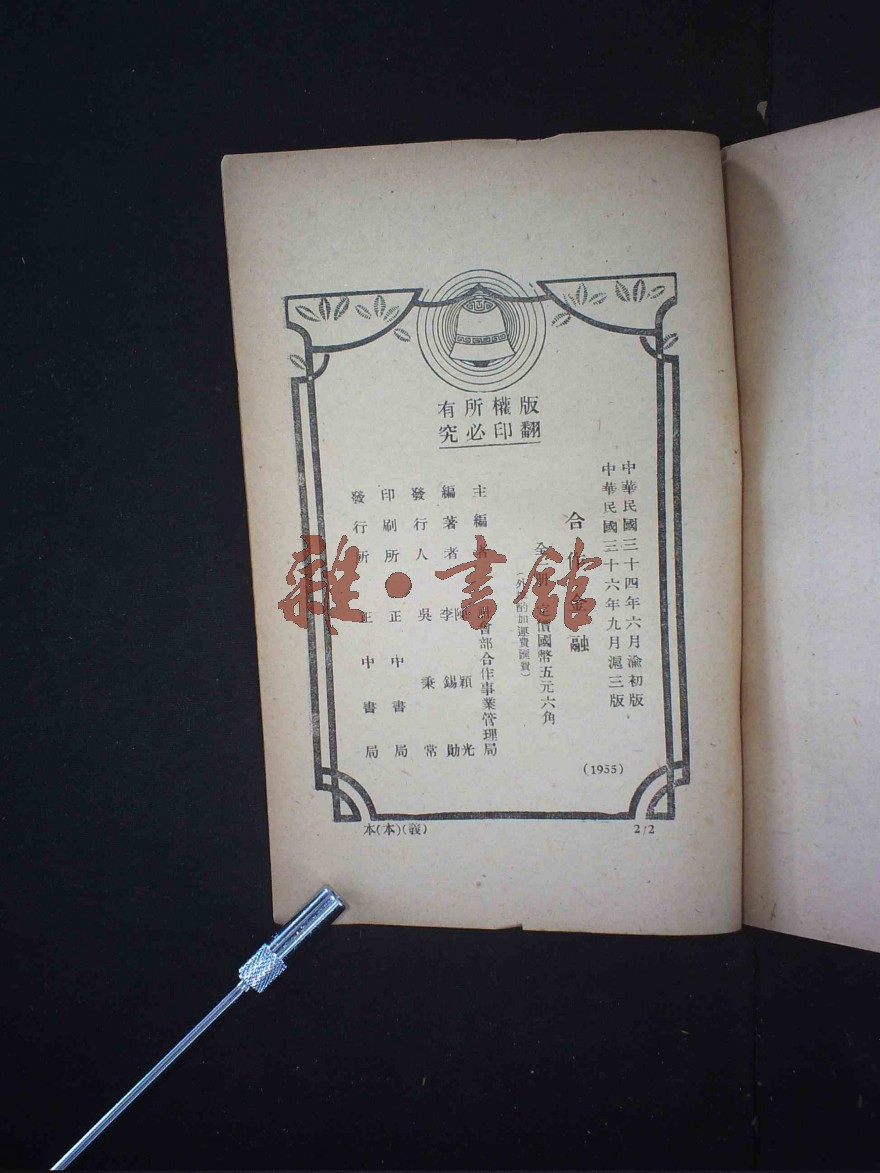 版權所有
翻印必究
中華民國三十四年六月渝初版
中華民國三十六年九月滬三版
合作金融
全一冊 定價國幣五元六角
(外埠酌加運費匯費)
主編者 社會部合作事業管理局
編著者 陳穎光
李錫勛
發行人 吳秉常
印刷所 正中書局
發行所 正中書局
(1955)
本(本)
2/2
雜·書館